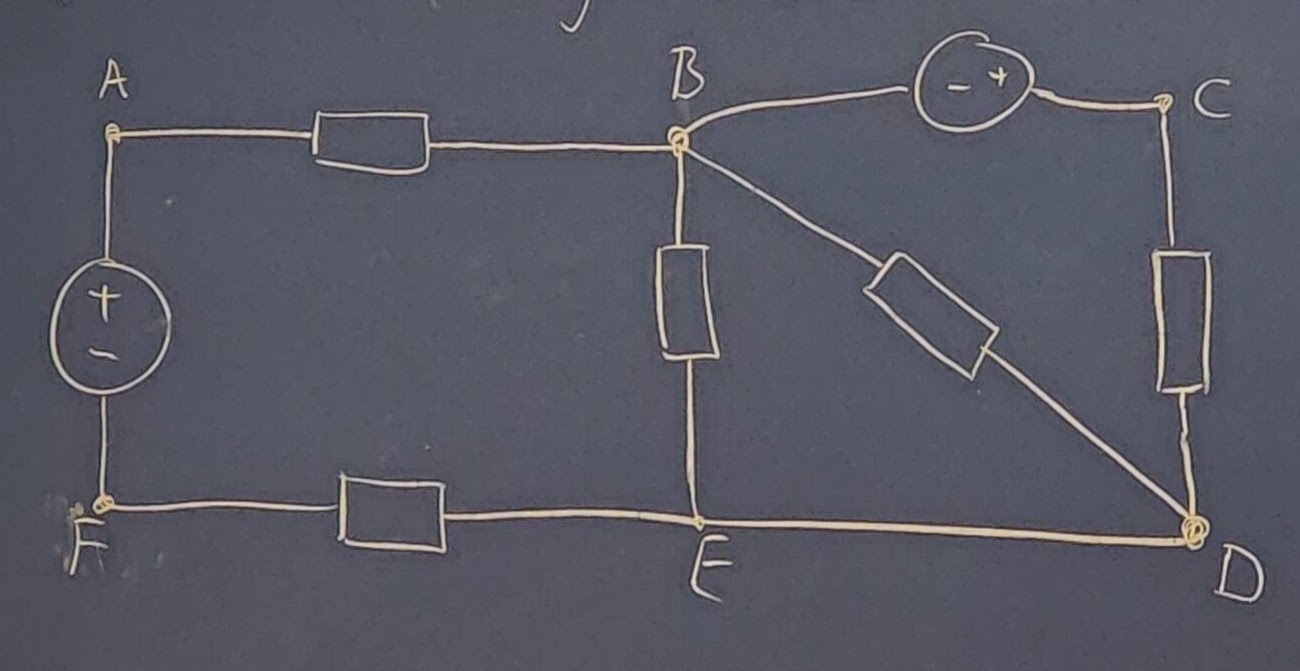 A
B
- +
C
+
-
F
E
D